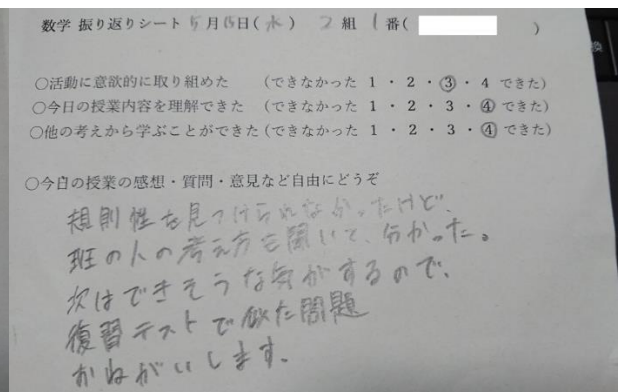 数学 振り返りシート 5月15日(水) 2組 1番( )
○活動に意欲的に取り組めた (できなかった 1 ・ 2 ・ 3 ・ 4 できた)
○今日の授業内容を理解できた (できなかった 1 ・ 2 ・ 3 ・ 4 できた)
○他の考えから学ぶことができた(できなかった 1 ・ 2 ・ 3 ・ 4 できた)
○今日の授業の感想・質問・意見など自由にどうぞ
規則性を見つけられなかったけど、
班の人の考え方を聞いて、分かった。
次はできそうな気がするので、
復習テストで似た問題
おねがいします。